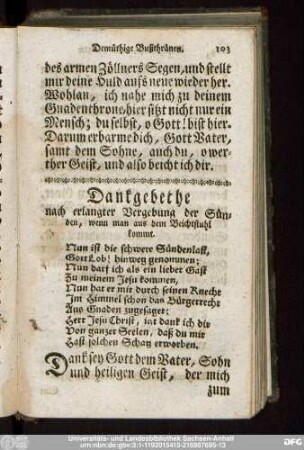 Demüthige Bußthränen. 103
des armen Zöllners Segen, und stellt
mir deine Huld aufs neue wieder her.
Wohlan, ich nahe mich zu deinem
Gnadenthron, hier sitzt nicht nur ein
Mensch; du selbst, o Gott! bist hier.
Darum erbarme dich, Gott Vater,
samt dem Sohne, auch du, o wer-
ther Geist, und also beicht ich dir.
Dankgebethe
nach erlangter Vergebung der Sün-
den, wenn man aus dem Beichtstuhl
kommt.
Nun ist die schwere Sündenlast,
Gott Lob! hinweg genommen;
Nun darf ich als ein lieber Gast
Zu meinem Jesu kommen,
Nun hat er mir durch seinen Knecht
Im Himmel schon das Bürgerrecht
Aus Gnaden zugesaget:
Herr Jesu Christ, itzt dank ich dir
Von ganzer Seelen, daß du mir
Hast solchen Schatz erworben.
Dank sey Gott dem Vater, Sohn
und heiligen Geist, der mich
zum
Universitäts- und Landesbibliothek Sachsen-Anhalt
urn:nbn:de:gbv:3:1-1192015415-216987695-13
DFG